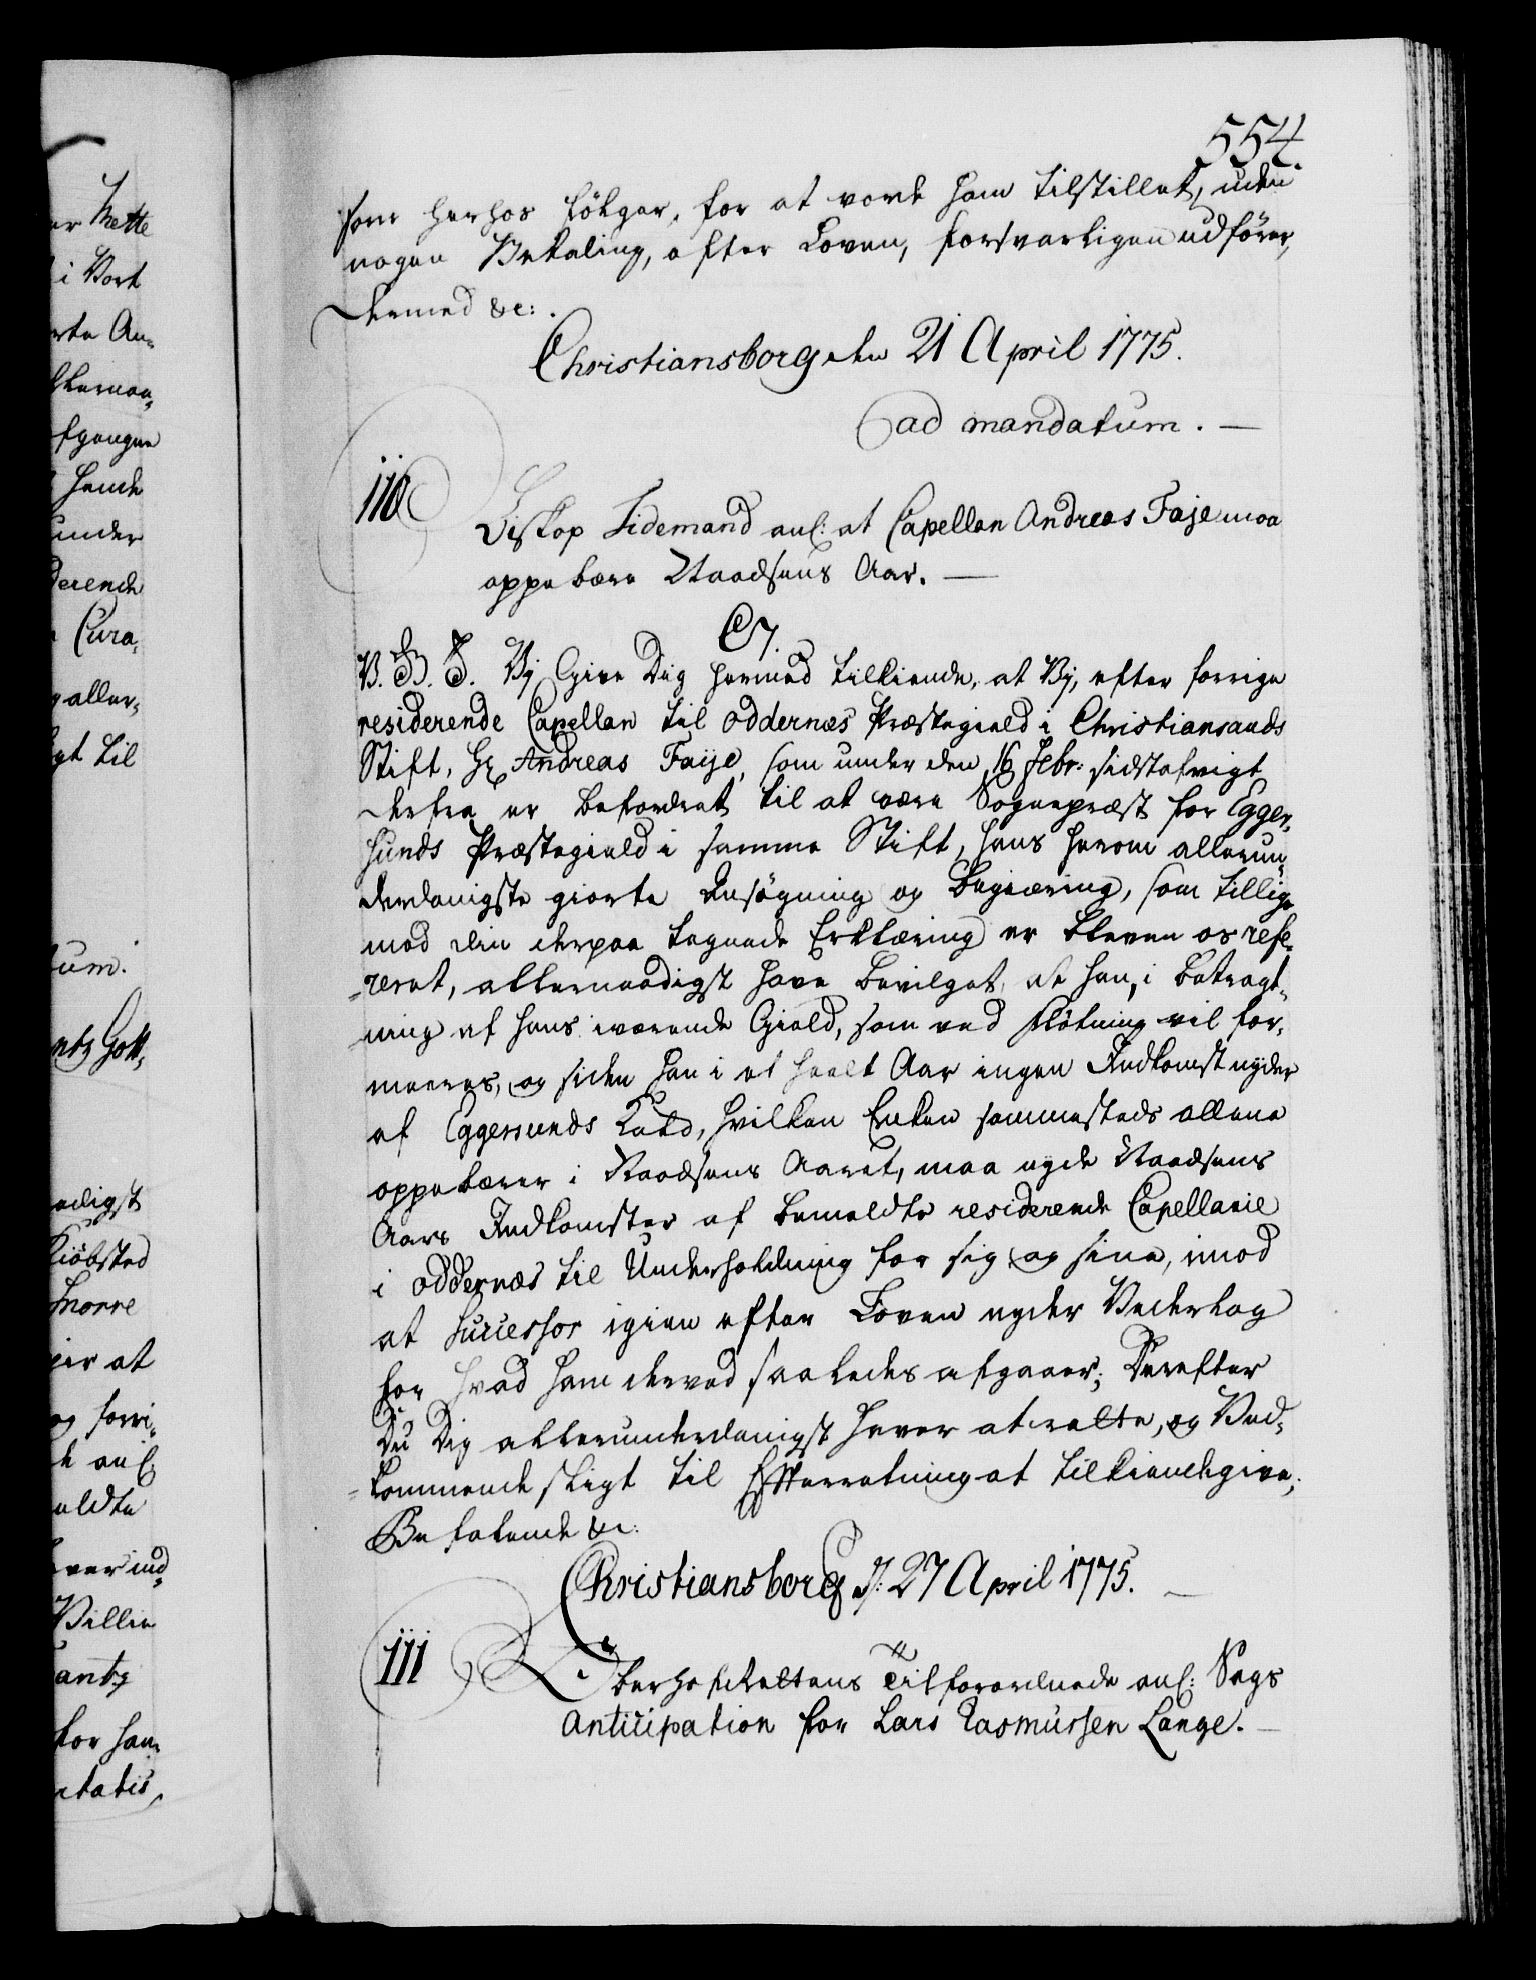 554.
som herhos følger, for at vorde ham tilstillet, uden
nogen Betaling, efter Loven, forsvarligen udfører,
dermed &c:.
Christiansborg den 21 April 1775.
ad mandatum. —
110
Biskop Tidemand anl: at Capellan Andreas Faje maa
oppebære Naadsens Aar. —
C7.
V. G. T. Vij Give Dig hermed tilkiende, at Vij, efter forrige
residerende Capellan til Oddernæs Præstegield i Christiansands
Stift, Hr Andreas Faije, som under den 16 Febr: sidstafvigt
derfra er befordret til at være Sognepræst for Egger-
sunds Præstegield i samme Stift, hans herom allerun-
derdanigste giorte Ansøgning og Begiæring, som tillige
med din derpaa tegnede Erklæring er bleven os refe-
reret, allernaadigst have bevilget, at han, i betragt-
ning af hans iværende Gield, som ved flötning vil for-
meeres, og siden han i et heelt Aar ingen Indkomst nyder
af Eggersunds Kald, hvilken Enken sammesteds allene
oppebærer i Naadsens Aaret, maa nyde Naadsens
Aars Indkomster af bemeldte residerende Capellanie
i Oddernæs til Underholdning for sig og sine, imod
at Successor igien efter Loven nyder Vederlag
for hvad ham derved saaledes afgaaer; Derefter
Du Dig allerunderdanigst haver at rette, og Ved-
kommende sligt til Efterretning at tilkiendegive;
Befalende &c:
Christiansborg d: 27 April 1775. —
111
Oberhofrettens Tilforordnede anl: Sags
Anticipation for Lars Rasmussen Lange. —